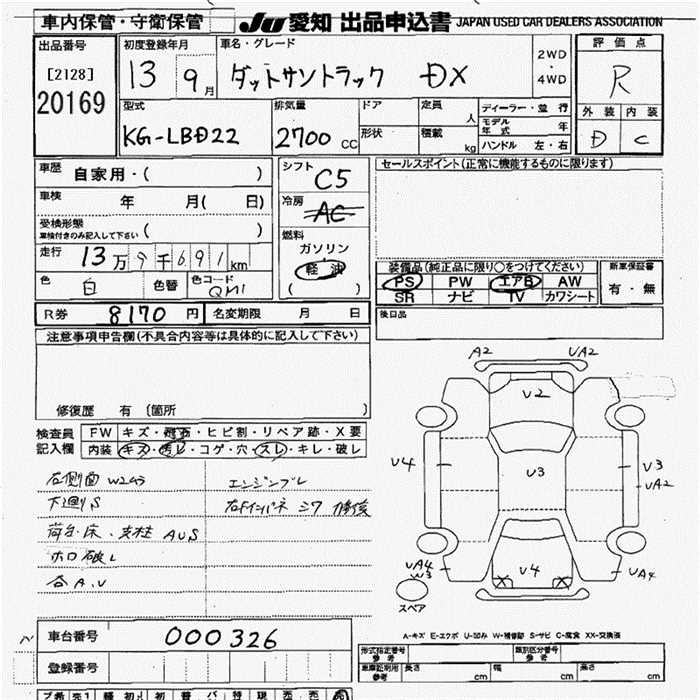 車内保管・守衛保管 JU 愛知 出品申込書 JAPAN USED CAR DEALERS ASSOCIATION
出品番号 初度登録年月 車名・グレード 2WD・4WD 評価点
[2128] 13 9月 ダットサントラック DX R
20169
型式 排気量 ドア 定員 人 ディーラー・並行 外装 内装
KG-LBD22 2700 CC 形状 積載 kg モデル年式 年 D C
ハンドル 左・右
車歴 自家用・( ) シフト C5 セールスポイント(正常に機能するものに限ります)
車検 年 月( 日) 冷房 AC
受検形態 ( )
車検付きのみ記入して下さい
燃料
走行 13万9千691km ガソリン
軽油
( )
装備品(純正品に限り○をつけてください) 新車保証書
色 白 色替 色コード QM1
PS PW エアB AW 有・無
SR ナビ TV カワシート
R券 8170円 名変期限 月 日 後日品
注意事項申告欄(不具合内容等は具体的に記入して下さい)
修復歴 有 (箇所 )
A2 UA2
V2
検査員 FW キズ・飛石・ヒビ割・リペア跡・X要
記入欄 内装 キズ・汚レ・コゲ・穴・スレ・キレ・破レ
V4 V3 V3
UA2
右側面 W2コウ エンジンブレ
下廻りS 右Fインパネ シワ 修復
荷台・床・支柱 AUS
ホロ破レ
各A.V
UA4 W3 V4 X X UA4
スペア
A-キズ E-エクボ U-凹み W-補修跡 S-サビ C-腐食 XX-交換済
車台番号 000326
登録番号
形式指定番号 参考 類別区分番号 参考
車庫証明用 参考 長さ cm 幅 cm 高さ cm